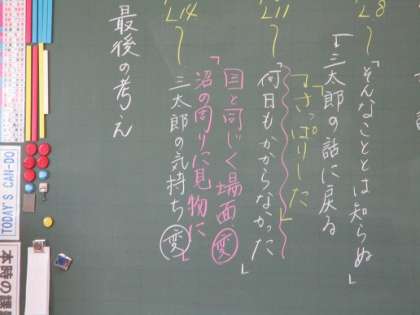 L8
「そんなこととは知らぬ
三太郎の話に戻る」
L11
「さっぱりした」
何日もかからなかった」
L14
「目と同じく場面変
沼の周りに見物に
三太郎の気持ち変」
最後の考え
TODAY'S CAN-DO
本時の課